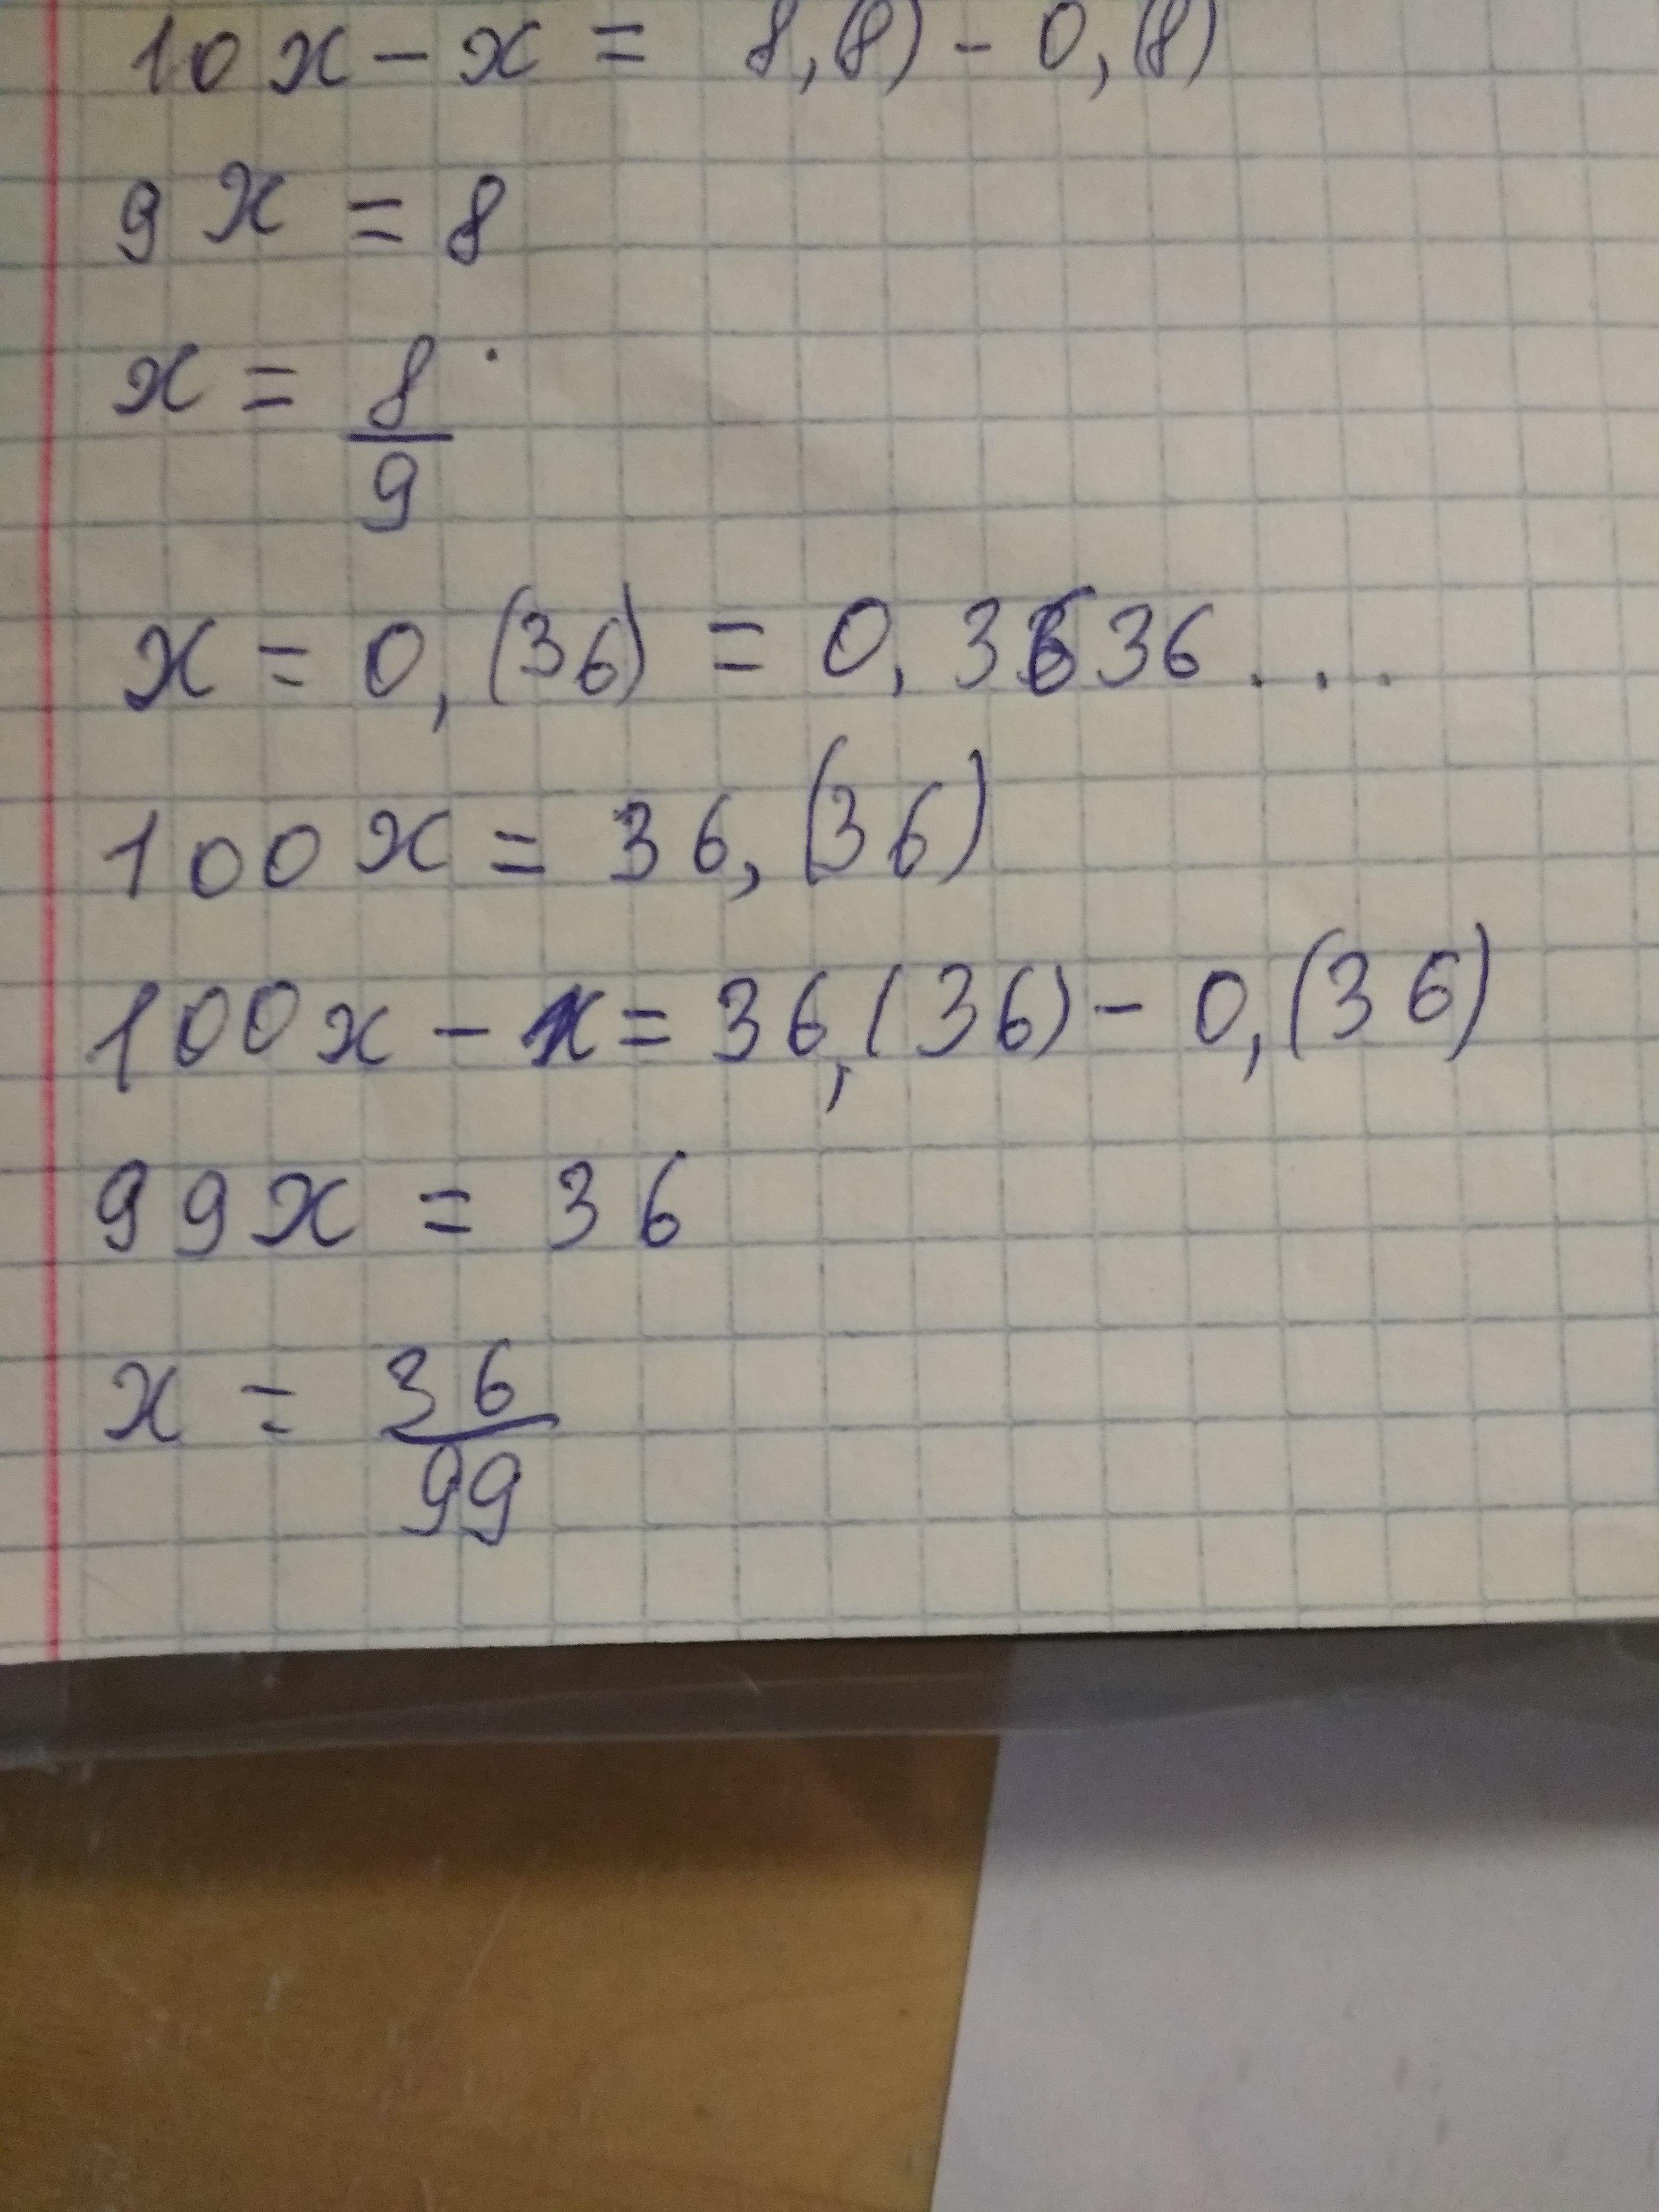 10x - x = 8,(8) - 0,(8)
9x = 8
x = 8/9
x = 0,(36) = 0,3636...
100x = 36,(36)
100x - x = 36,(36) - 0,(36)
99x = 36
x = 36/99